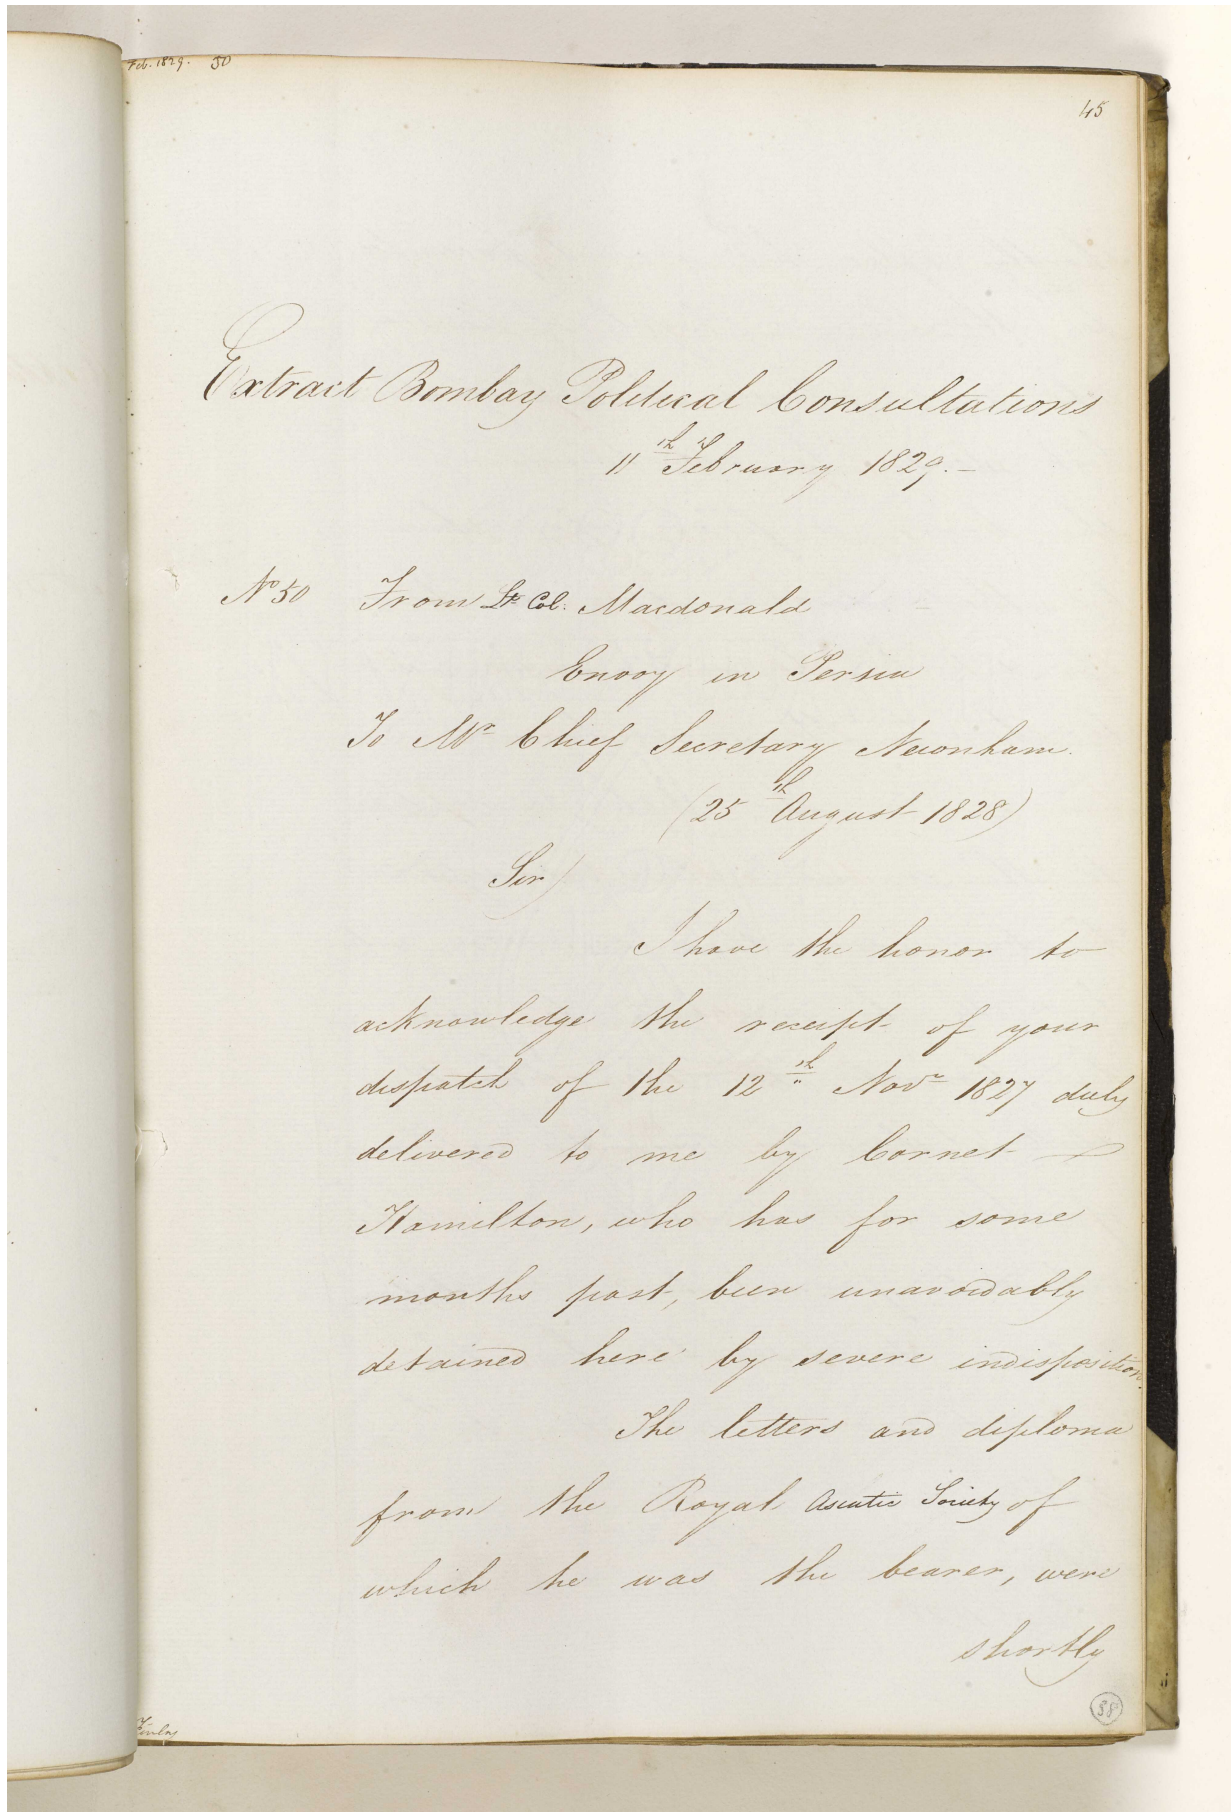 Feb. 1829. 50
45
Extract Bombay Political Consultations
11th February 1829.—
No 50 From Lt Col: Macdonald
Envoy in Persia
To Mr Chief Secretary Newnham.
(25th August 1828)
Sir)
I have the honor to
acknowledge the receipt of your
dispatch of the 12th Novr 1827 duly
delivered to me by Cornet
Hamilton, who has for some
months past, been unavoidably
detained here by severe indisposition.
The letters and diploma
from the Royal Asiatic Society of
which he was the bearer, were
shortly
38